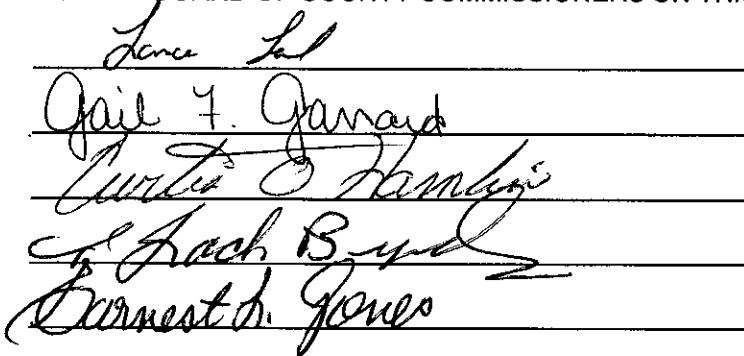 BOARD OF COUNTY COMMISSIONERS ON THI
Lance
Gail F. Garrard
Curtis O Hamlin
Zach
Earnest L. Jones